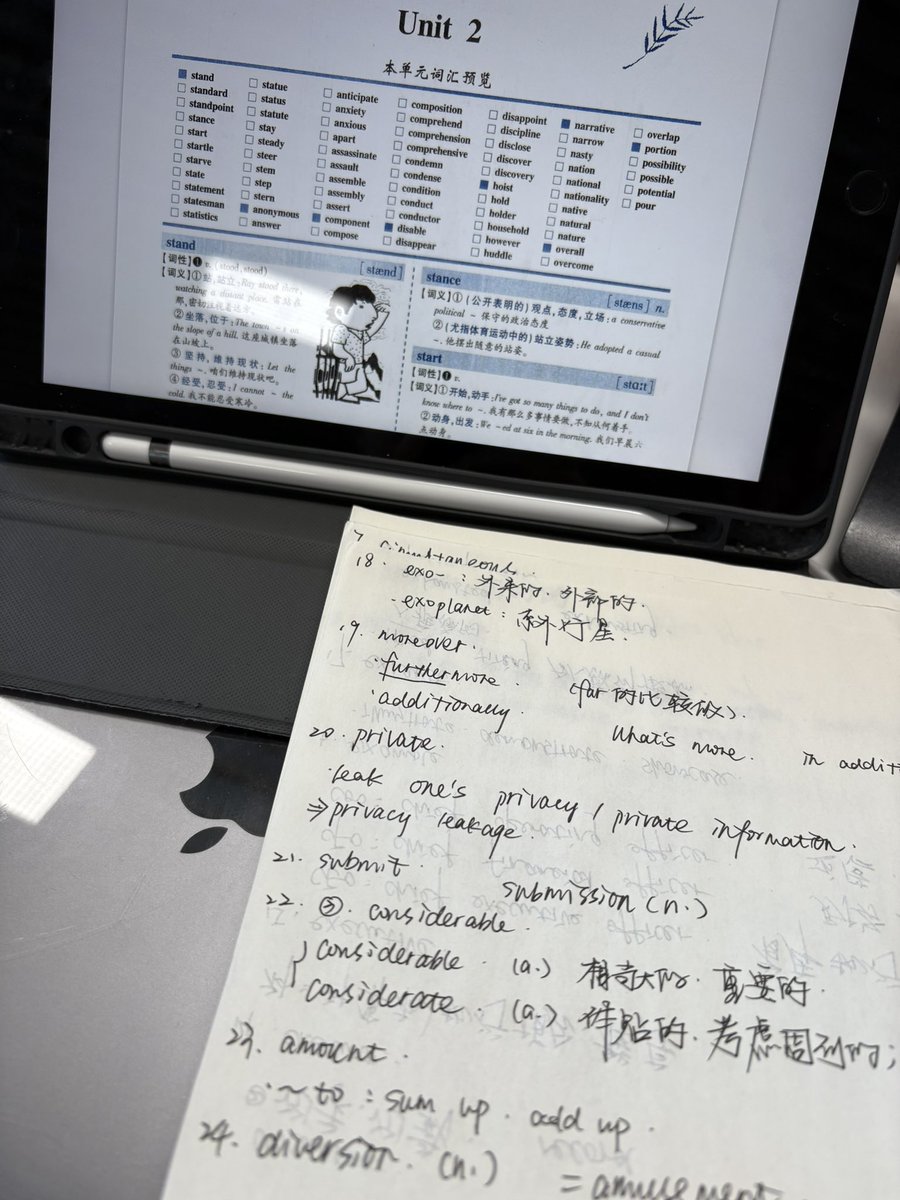 Unit 2
本单元词汇预览
stand
standard
standpoint
stance
start
startle
starve
state
statement
statesman
statistics
statue
status
statute
stay
steady
steer
stem
step
stern
anonymous
answer
anticipate
anxiety
anxious
apart
assassinate
assault
assemble
assembly
assert
component
compose
composition
comprehend
comprehension
comprehensive
condemn
condense
condition
conduct
conductor
disable
disappear
disappoint
discipline
disclose
discover
discovery
hoist
hold
holder
household
however
huddle
narrative
narrow
nasty
nation
national
nationality
native
natural
nature
overall
overcome
overlap
portion
possibility
possible
potential
pour
stand [stænd]
【词性】❶ v. (stood, stood)
【词义】①站,站立: Ray stood there,
watching a distant place. 雷站在
那,密切注视着远方。
②坐落,位于: The town ~s on
the slope of a hill. 这座城镇坐落
在山坡上。
③坚持,维持现状: Let the
things ~. 咱们维持现状吧。
④经受,忍受: I cannot ~ the
cold. 我不能忍受寒冷。
stance [stæns] n.
【词义】①(公开表明的)观点,态度,立场: a conservative
political ~ 保守的政治态度
②(尤指体育运动中的)站立姿势: He adopted a casual
~. 他摆出随意的站姿。
start [stɑːt]
【词性】❶ v.
【词义】①开始,动手: I've got so many things to do, and I don't
know where to ~. 我有那么多事情要做,不知从何着手。
②动身,出发: We ~ed at six in the morning. 我们早晨六
点动身。
18. exo- : 外来的. 外部的.
- exoplanet : 系外行星.
19. moreover.
· furthermore. (far 的比较级).
· additionally. What's more. In addit
20. private.
· leak one's privacy / private information.
⇒ privacy leakage
21. submit. submission (n.)
22. ③. considerable.
considerable. (a.) 相当大的. 重要的.
considerate. (a.) 体贴的. 考虑周到的;
23. amount.
· ~ to : sum up. add up.
24. diversion. (n.) = amusement